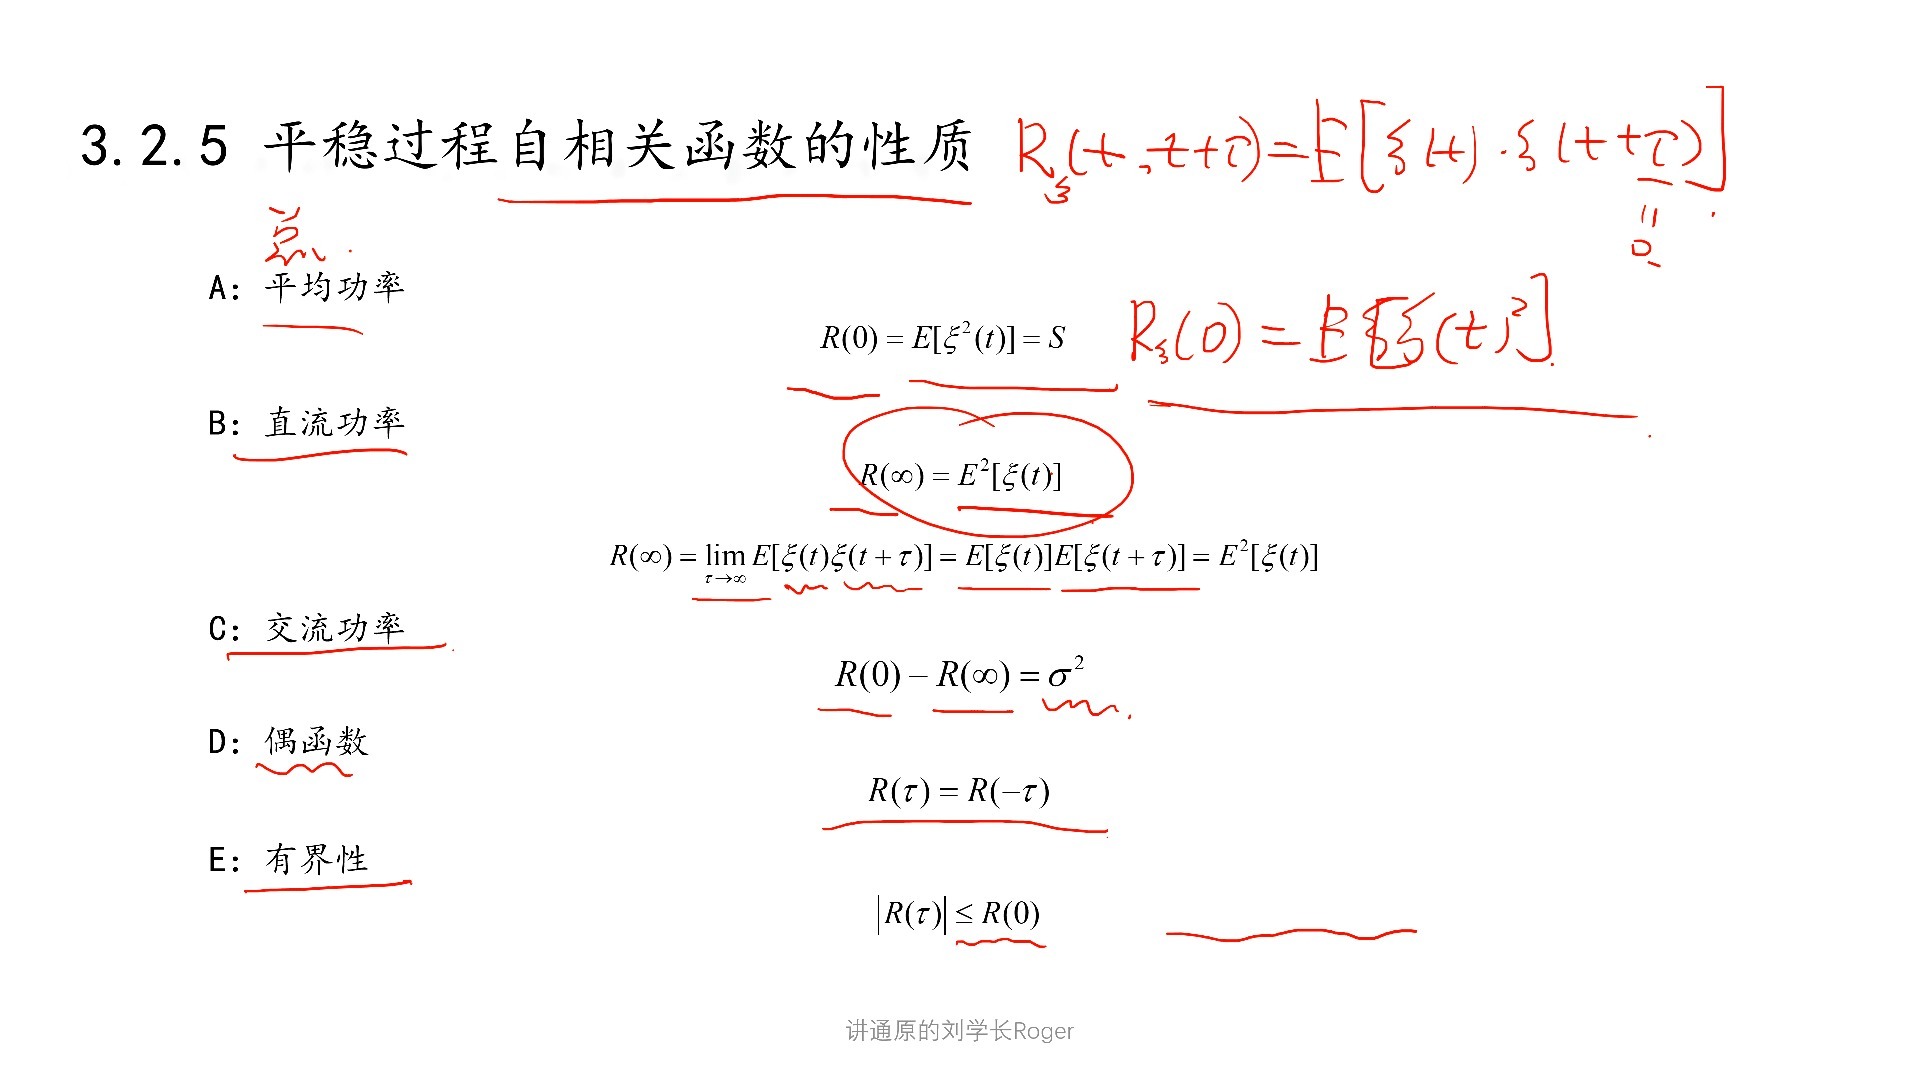 3.2.5 平稳过程自相关函数的性质 R_ξ(t,t+τ)=E[ξ(t)·ξ(t+τ)]
总 〃 0
A: 平均功率
R(0) = E[ξ²(t)] = S R_ξ(0) = E[ξ(t)²]
B: 直流功率
R(∞) = E²[ξ(t)]
R(∞) = lim_{τ→∞} E[ξ(t)ξ(t + τ)] = E[ξ(t)]E[ξ(t + τ)] = E²[ξ(t)]
C: 交流功率
R(0) − R(∞) = σ²
D: 偶函数
R(τ) = R(−τ)
E: 有界性
|R(τ)| ≤ R(0)
讲通原的刘学长Roger